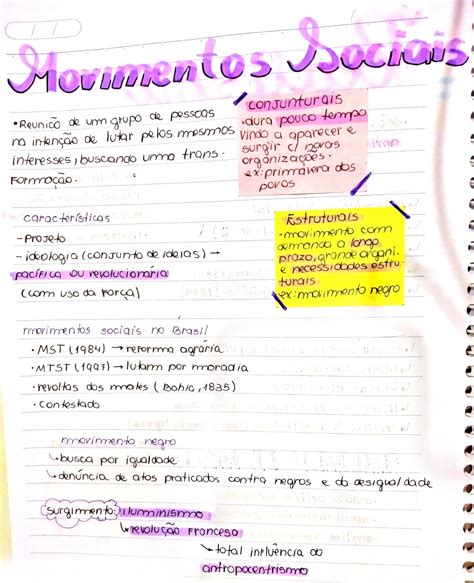 Movimentos Sociais
• Reunião de um grupo de pessoas
na intenção de lutar pelos mesmos
interesses, buscando uma trans-
formação.
conjunturais
• dura pouco tempo
vindo a aparecer e
surgir c/ novas
organizações.
ex: primavera dos
povos
características
- Projeto
- ideologia (conjunto de ideias) →
pacífica ou revolucionária
(com uso da força)
Estruturais
• movimento com
demanda a longo
prazo, grande organi.
e necessidades estru
turais
ex: movimento negro
movimentos sociais no Brasil
• MST (1984) → reforma agrária
• MTST (1997) → lutam por moradia
• revoltas dos malês (Bahia, 1835)
• Contestado
movimento negro
↳ busca por igualdade
↳ denúncia de atos praticados contra negros e da desigualdade
surgimento: iluminismo
↳ revolução Francesa
↳ total influência do
antropocentrismo